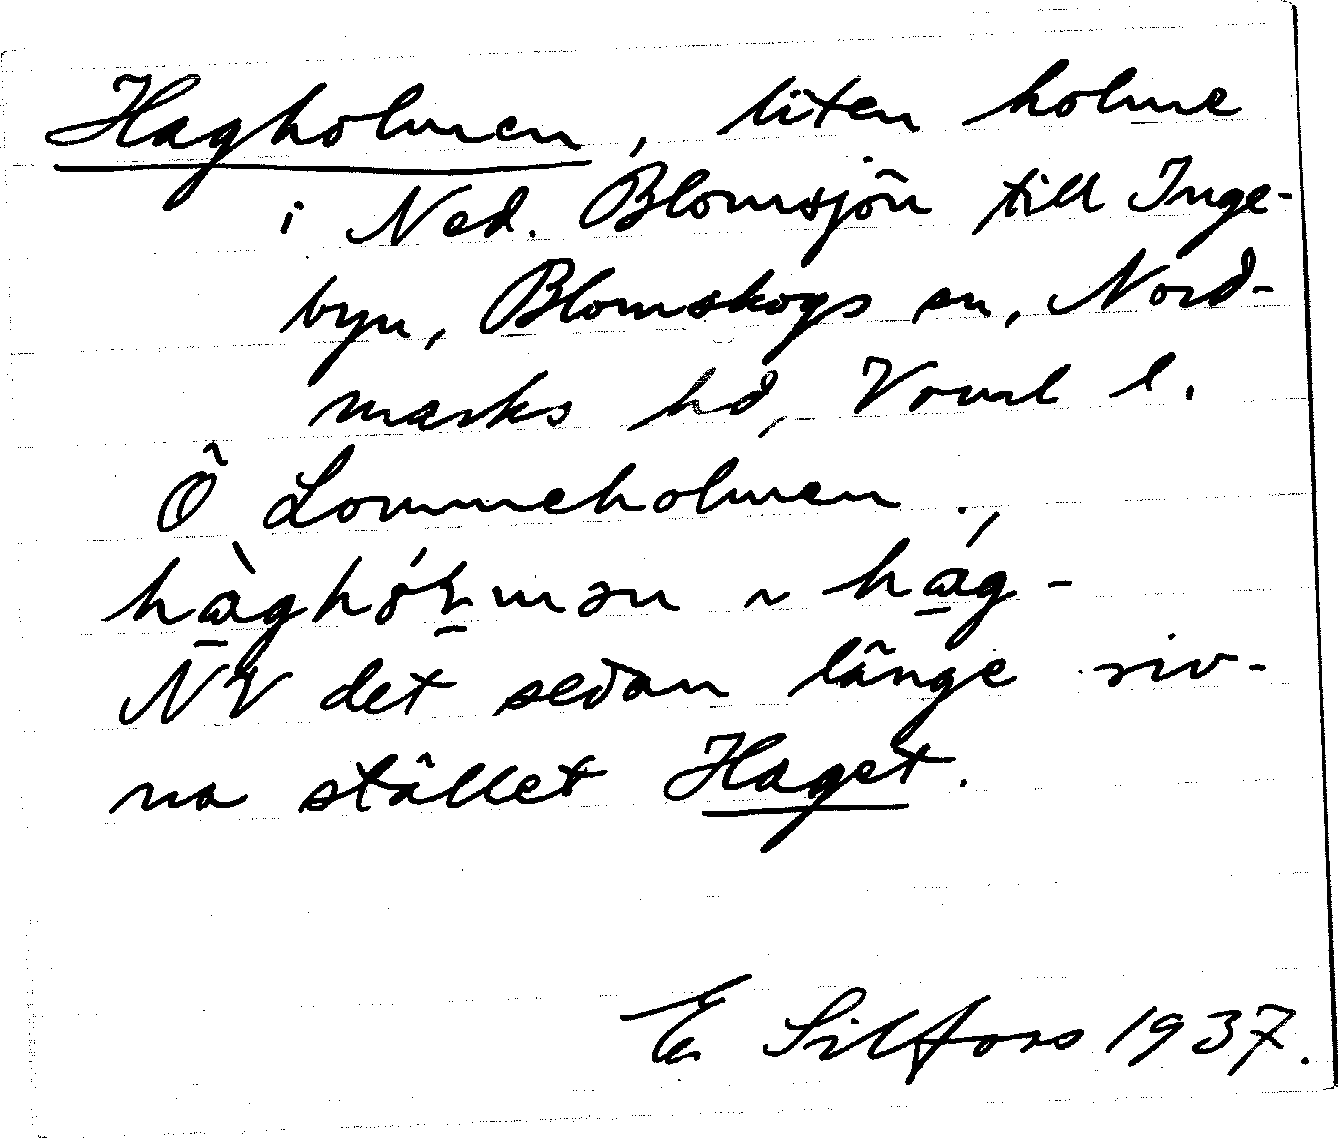 Hagholmen, liten holme
i Ned. Blomsjön till Inge-
byn, Blomskogs sn, Nord-
marks hd, Vrml l.
Ö Lommeholmen.,
hàghó̱ɽmən ~ hág-
NV det sedan länge riv-
na stället Haget.
E Silfors 1937.